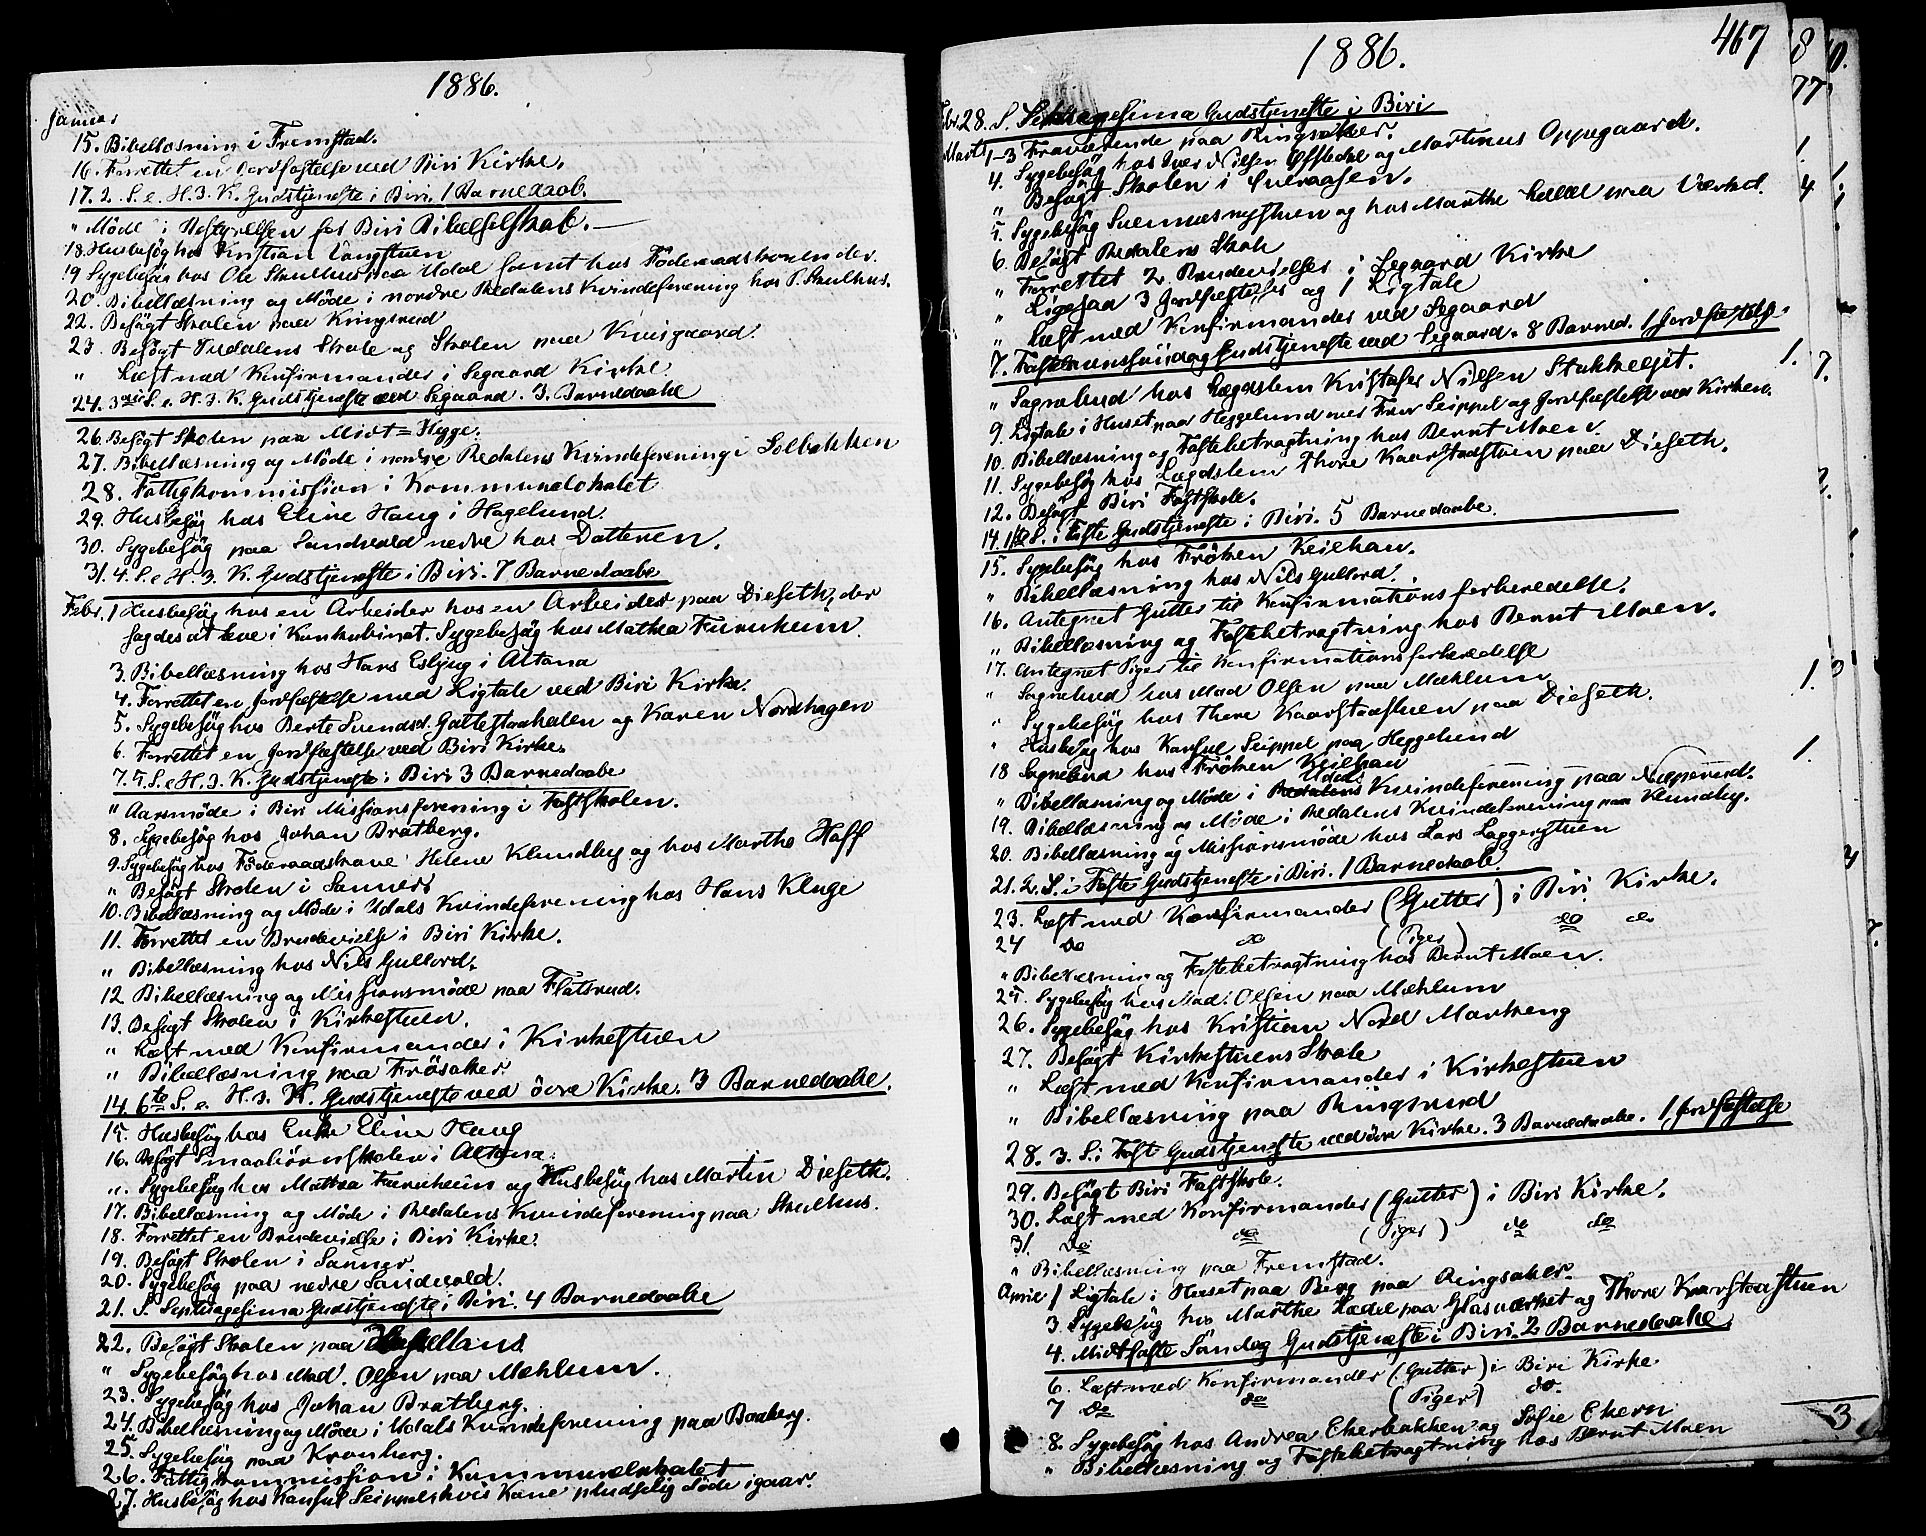 1886.
Januar
15. Bibellæsning i Fremstad.
16. Forrettet en Jordfæstelse ved Biri Kirke.
17. 2. S. e. H. 3. K. Gudstjeneste i Biri. 1 Barnedaab.
" Möde i Bestyrelsen for Biri Bibelselskab.
18. Husbesög hos Kristian Vangstuen
19 Sygebesög hos Ole Skulhus paa Udal samt hos Föderaadskonen der.
20. Bibellæsning og Möde i nordre Redalens Kvindeforening hos P. Skulhus.
22. Besögt Skolen paa Kingsrud
23. Besögt Redalens Skole og Skolen paa Kniisgaard.
" Læst med Konfirmander i Segaard Kirke.
24. 3die S. e. H. 3. K. Gudstjeneste ved Segaard. 3. Barnedaabe
26. Besögt Skolen paa Midt=Hegge.
27. Bibellæsning og Möde i nordre Redalens Kvindeforening i Solbakken
28. Fattigkommission i Kommunelokalet
29. Husbesög hos Eline Haug i Hagelund.
30. Sygebesög paa Sandvold nedre hos Datteren.
31. 4. S. e. H. 3. K. Gudstjeneste i Biri. 7 Barnedaabe
Febr. 1 Husbesög hos en Arbeider hos en Arbeider paa Dieseth, der
sagdes at leve i Konkubinat. Sygebesög hos Mathea Furuheim.
3. Bibellæsning hos Hans Esbjug i Altona
4. Forrettet en Jordfæstelse med Ligtale ved Biri Kirke.
5. Sygebesög hos Berte Svendsd. og Karen Nordhagen
6. Forrettet en Jordfæstelse ved Biri Kirke.
7. 5. S. e. H. 3. K. Gudstjeneste i Biri 3 Barnedaabe
" Aarsmöde i Biri Missionsforening i Fastskolen.
8. Sygebesög hos Johan Bratberg.
9. Sygebesög hos Föderaadskone Helene Klundby og hos Marthe Haff
" Besögt Skolen i Sanner
10. Bibellæsning og Möde i Udals Kvindeforening hos Hans Kluge
11. Forrettet en Brudevielse i Biri Kirke.
" Bibellæsning hos Nils Gullord.
12 Bibellæsning og Missionsmöde paa Flatsrud.
13. Besögt Skolen i Kirkestuen.
" Læst med Konfirmander i Kirkestuen
" Bibellæsning paa Frösaker
14. 6te S. e. H. 3. K. Gudstjeneste ved övre Kirke. 3 Barnedaabe.
15. Husbesög hos Enke Eline Haug
16. Besögt Smaabörnskolen i Altona.
" Sygebesög hos Mathea Furuheim og Husbesög hos Martin Dieseth.
17. Bibellæsning og Möde i Redalens Kvindeforening paa Skulhus.
18. Forrettet en Brudevielse i Biri Kirke.
19. Besögt Skolen i Sanner
20. Sygebesög paa nedre Sandvold.
21. S. Septuagesima Gudstjeneste i Biri. 4 Barnedaabe
22. Besögt Skolen paa
" Sygebesög hos Mad. Olsen paa Mæhlum.
23. Sygebesög hos Johan Bratberg.
24. Bibellæsning og Möde i Udals Kvindeforening paa Braaberg.
25. Sygebesög paa Kronborg.
26. Fattigkommission i Kommunelokalet
27. Husbesög hos Konsul Seippel, hvis Kone pludselig döde igaar.
467
1886.
Febr. 28. S. Sexagesima Gudstjeneste i Biri
Marts 1-3 Fraværende paa Ringsaker.
4. Sygebesög hos Iver Nilsen Öfsteche og Martinus Oppegaard.
" Besögt Skolen i Sveraasen.
5. Sygebesög Svennesnystuen og hos Marthe Lædel ved Værket.
6. Besögt Redalens Skole
" Forrettet 2 Brudevielser i Segaard Kirke
" Ligesaa 3 Jordfæstelser og 1 Ligtale
" Læst med Konfirmander ved Segaard
7. Fastelavnssöndag Gudstjeneste ved Segaard. 8 Barned. 1 Jordfæstelse.
" Sognebud hos Lægdslem Kristofer Nilsen Stokkelyet.
9. Ligtale i Huset paa Heggelund over Fru Seippel og Jordfæstelse ved Kirken.
10. Bibellæsning og Fastebetragtning hos Bernt Moen
11. Sygebesög hos Lægdslem Thore Kaarstadstuen paa Dieseth.
12. Besögt Biri Fastskole.
14. 1ste S. i Faste Gudstjeneste i Biri. 5 Barnedaabe.
15. Sygebesög hos Fröken Keilhau.
" Bibellæsning hos Nils Gullord.
16. Antegnet Gutter til Konfirmationsforberedelse.
" Bibellæsning og Fastebetragtning hos Bernt Moen.
17. Antegnet Piger til Konfirmationsforberedelse
" Sognebud hos Mad Olsen paa Mæhlum
" Sygebesög hos Thore Kaarstadstuen paa Dieseth.
" Husbesög hos Konsul Seippel paa Heggelund
18 Sognebud hos Fröken Keilhau
" Bibellæsning og Möde i Udals Kvindeforening paa Næperud.
19. Bibellæsning og Möde i Redalens Kvindeforening paa Klundby.
20. Bibellæsning og Missionsmöde hos Lars Laggerstuen
21. 2. S. i Faste Gudstjeneste i Biri. 1 Barnedaab
23. Læst med Konfirmander (Gutter) i Biri Kirke.
24 Do do (Piger) do do
" Bibellæsning og Fastebetragtning hos Bernt Moen.
25. Sygebesög hos Mad. Olsen paa Mæhlum
26. Sygebesög hos Kristian Nord Markeng
27. Besögt Kirkestuens Skole
" Læst med Konfirmander i Kirkestuen
" Bibellæsning paa Ringsrud
28. 3. S. i Faste Gudstjeneste ved övre Kirke. 3 Barnedaabe. 1 Jordfæstelse
29. Besögt Biri Fastskole.
30. Læst med Konfirmander (Gutter) i Biri Kirke.
31. Do do (Piger) do do
" Bibellæsning paa Fremstad.
April 1 Ligtale i Huset paa Berg paa Ringsaker.
3. Sygebesög hos Marthe Lædel paa Glasværket og Thore Kaarstadstuen
4. Midtfaste Söndag Gudstjeneste i Biri. 2 Barnedaabe.
6. Læst med Konfirmander (Gutter) i Biri Kirke
7 Do do (Piger) do.
8. Sygebesög hos Andrea Ekerbakken og Sofie Ekern
" Bibellæsning og Fastebetragtning hos Bernt Moen